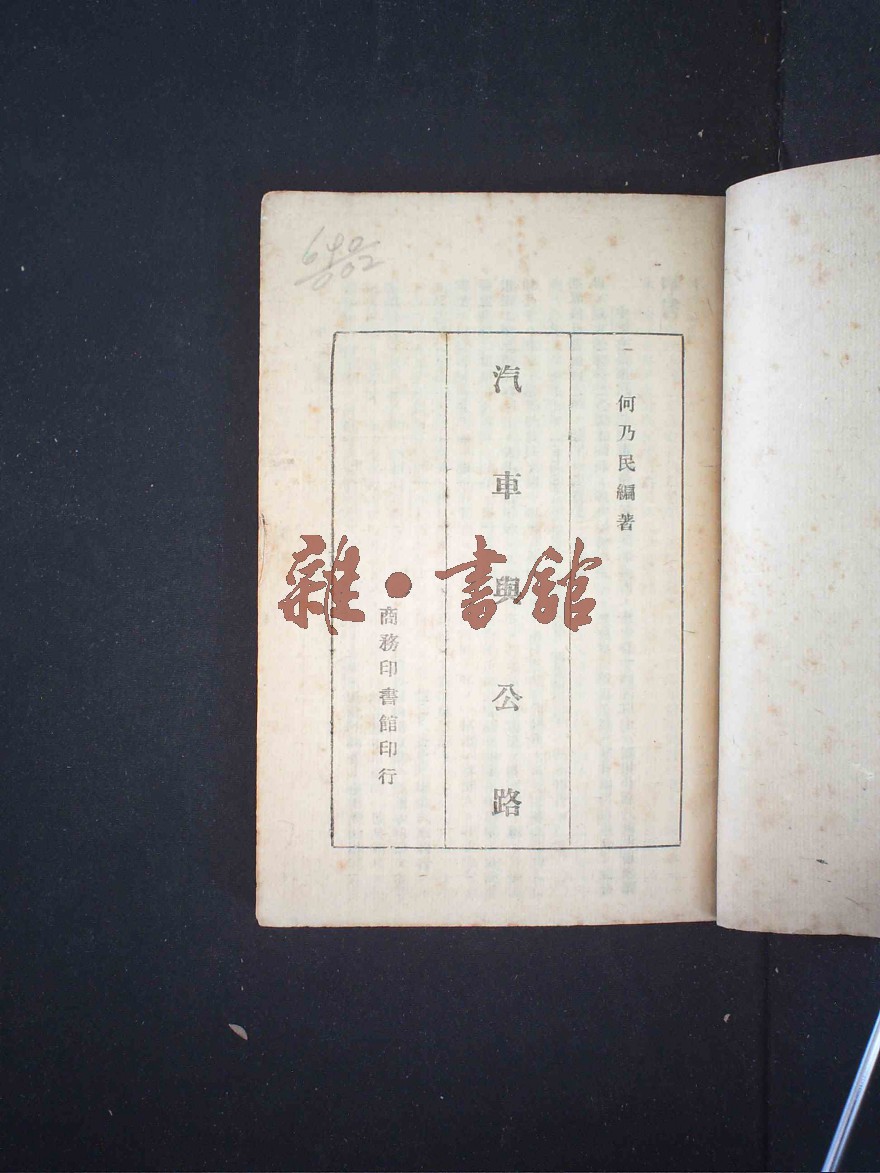 何乃民編著
汽車與公路
商務印書館印行
雜·書館
640
002